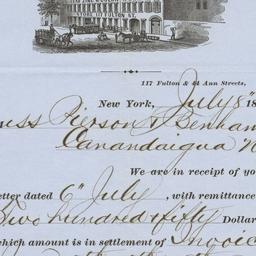 117 Fulton & 44 Ann Streets,
New York, July 8" 18
Pierson & Benham
Canandaigua N
We are in receipt of yo
etter dated 6" July, with remittance
Two hundred & fifty Dollar
which amount is in settlement of Invoic